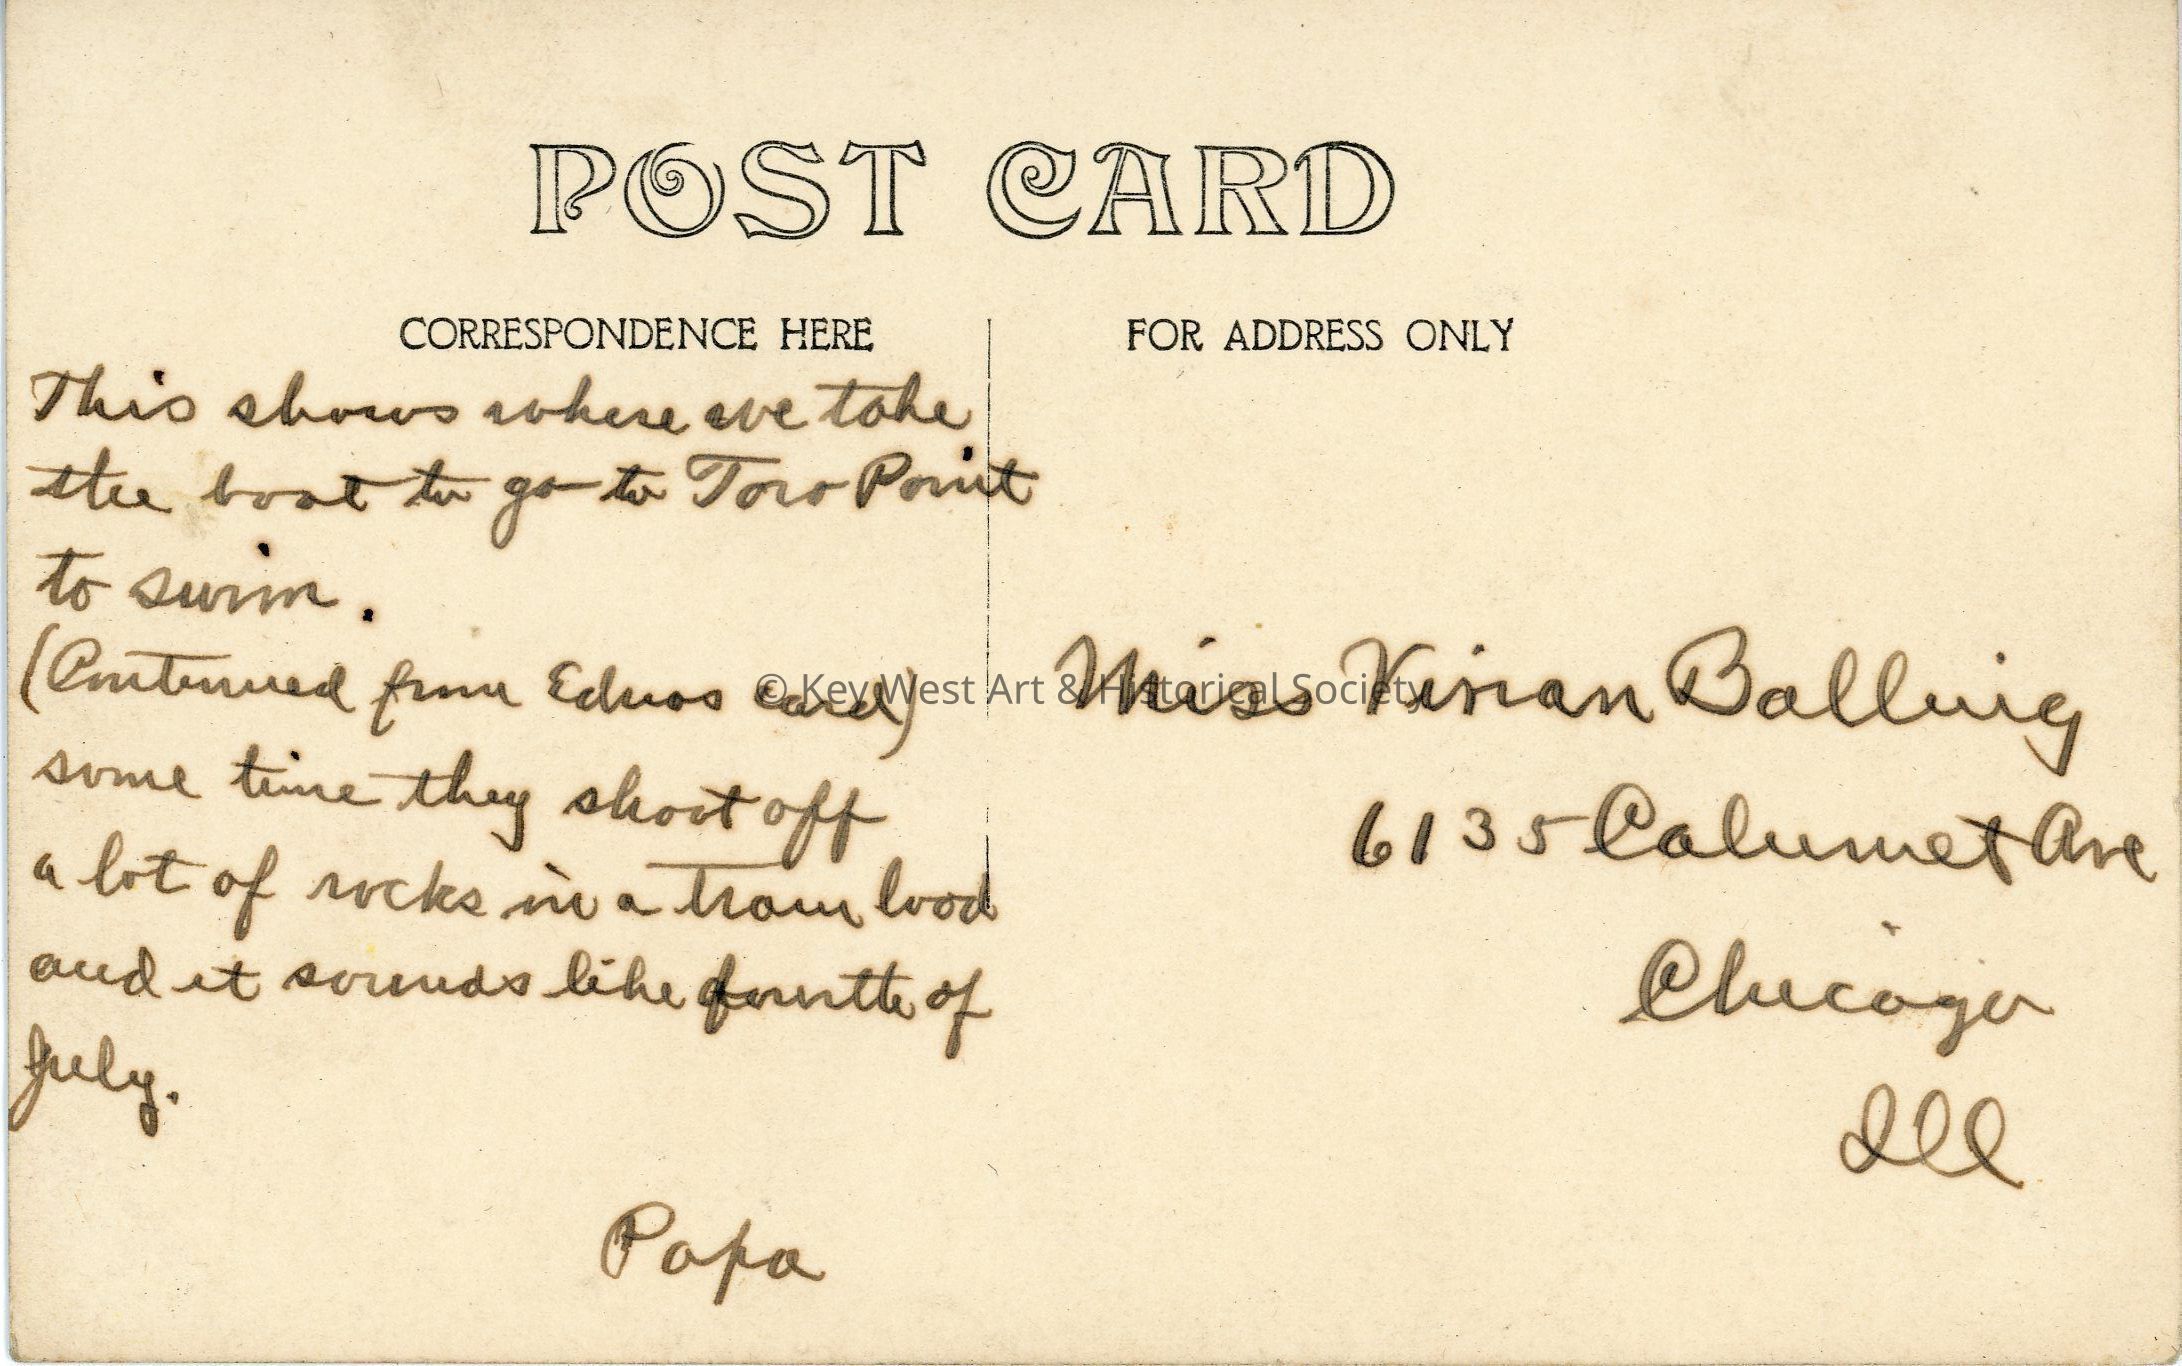 POST CARD
CORRESPONDENCE HERE
FOR ADDRESS ONLY
This shows where we take
the boat to go to Toro Point
to swim.
(Continued from Ednas card)
some time they shoot off
a lot of rocks in a train load
and it sounds like fourth of
July.
Papa
Miss Vivian Balling
6135 Calumet Ave
Chicago
Ill
© Key West Art & Historical Society